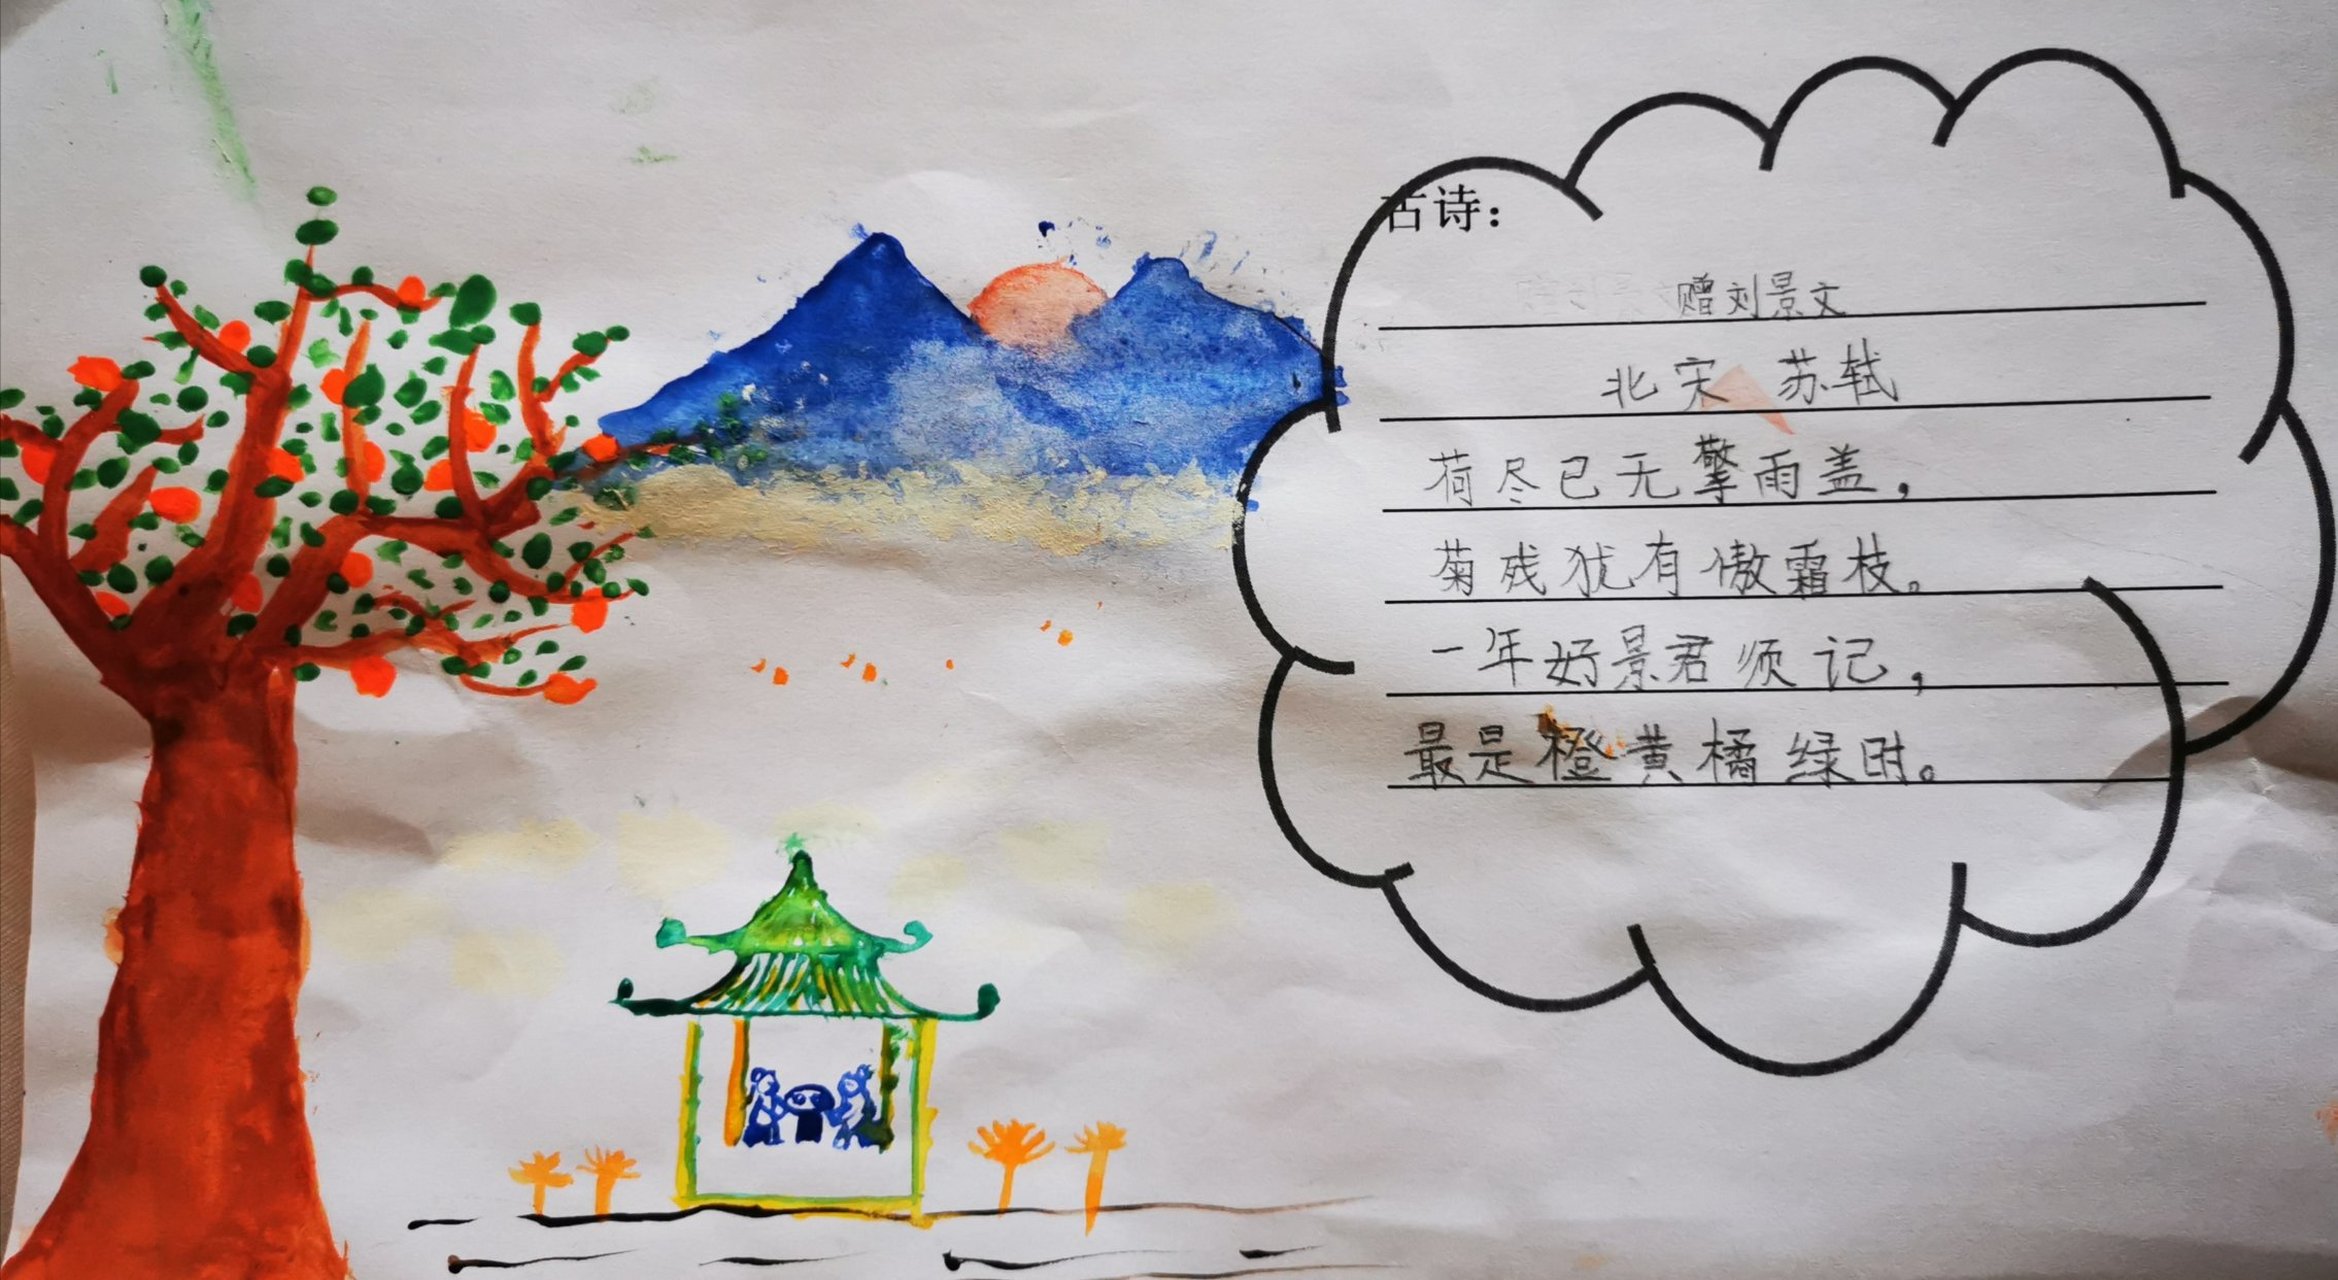 古诗：
赠刘景文
北宋 苏轼
荷尽已无擎雨盖，
菊残犹有傲霜枝。
一年好景君须记，
最是橙黄橘绿时。